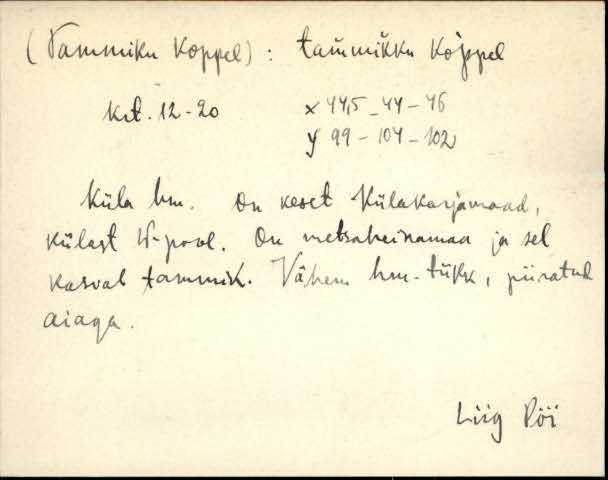 (Tammiku Koppel) : tam̆mikku Kop̀pel
krt. 12-20 x 44,5 - 44 - 46
y 99 - 104 - 102
Küla hm. On keset Külakarjamaad,
külast W-pool. On metsaheinamaa ja sel
kasvab tammik. Vähem hm.-tükk, piiratud
aiaga.
Liig Pöi